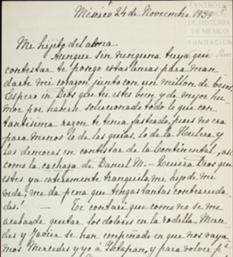 México 24 de Noviembre 1939
Mi hijito del alma.
Aunque sin ninguna tuya que
contestar te pongo estas letras para man
darte mi corazon, junto con un millon de besos.
Espero en Dios que tu estes bien y de mejor hu
mor por haber solucionado todo lo que con
tantisima razon te tenia fastidiado, pues no era
para menos lo de las guias, lo de la Huelga y
las demoras en contestar de la Continental, asi
como la cachaza de Daniel M. Quiera Dios que
estes ya enteramente tranquilo, me hijo de mi
vida; me da pena que tengas tantas contrarieda
des. Te contaré que como no se me
acababan de quitar los dolores en la rodilla, Man
des y Javier se han empeñado en que nos vaya
mos Mercedes y yo a Ixtapan, y para volver pa